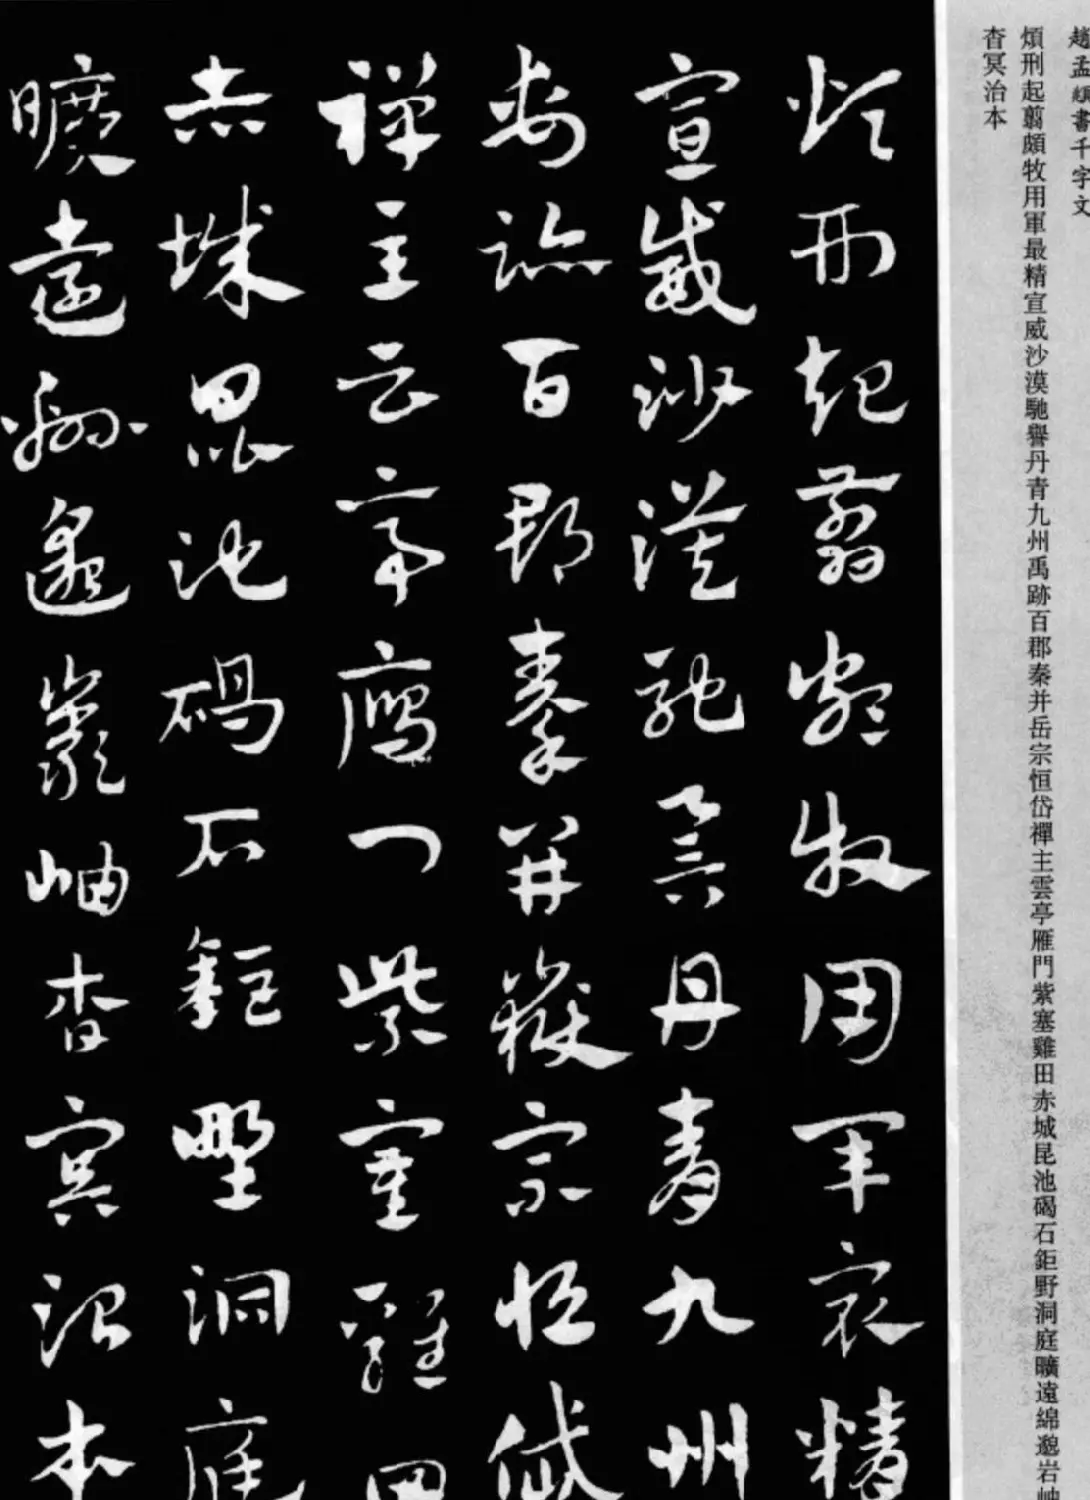 趙孟頫書千字文
煩刑起翦頗牧用軍最精宣威沙漠馳譽丹青九州禹跡百郡秦并岳宗恒岱禪主雲亭雁門紫塞雞田赤城昆池碣石鉅野洞庭曠遠綿邈岩岫
杳冥治本
煩刑起翦頗牧用軍最精
宣威沙漠馳譽丹青九州
禹跡百郡秦并嶽宗恒岱
禪主云亭雁門紫塞雞田
赤城昆池碣石鉅野洞庭
曠遠綿邈巖岫杳冥治本